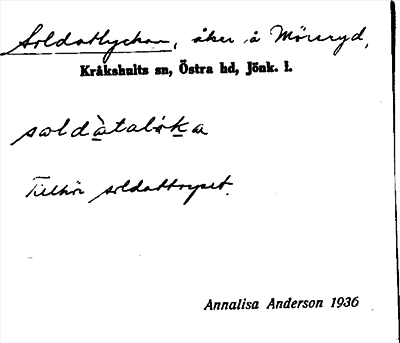 Soldatlyckan, åker å Möreryd,
Kråkshults sn, Östra hd, Jönk. l.
soldàtalỳka
Tillhör soldattorpet.
Annalisa Anderson 1936